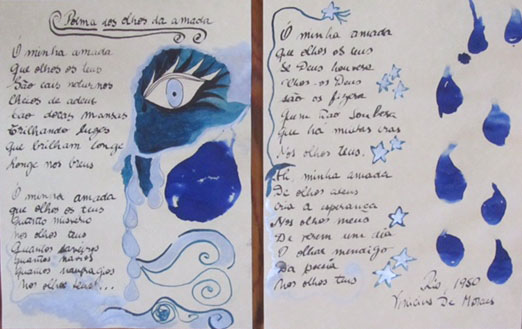 Poema nos olhos da amada
Ó minha amada
Que olhos os teus
São cais noturnos
Cheios de adeus
São docas mansas
Trilhando luzes
que brilham longe
Longe nos breus
Ó minha amada
que olhos os teus
Quanto mistério
nos olhos teus
Quantos saveiros
Quantos navios
Quantos naufrágios
Nos olhos teus...
Ó minha amada
Que olhos os teus
Se Deus houvera
Fizera-os Deus
são os fizera
Quem não soubera
que há muitas eras
Nos olhos teus.
Ah, minha amada
De olhos ateus
Cria a esperança
Nos olhos meus
De verem um dia
O olhar mendigo
Da poesia
Nos olhos teus
Rio, 1950
Vinicius De Morais